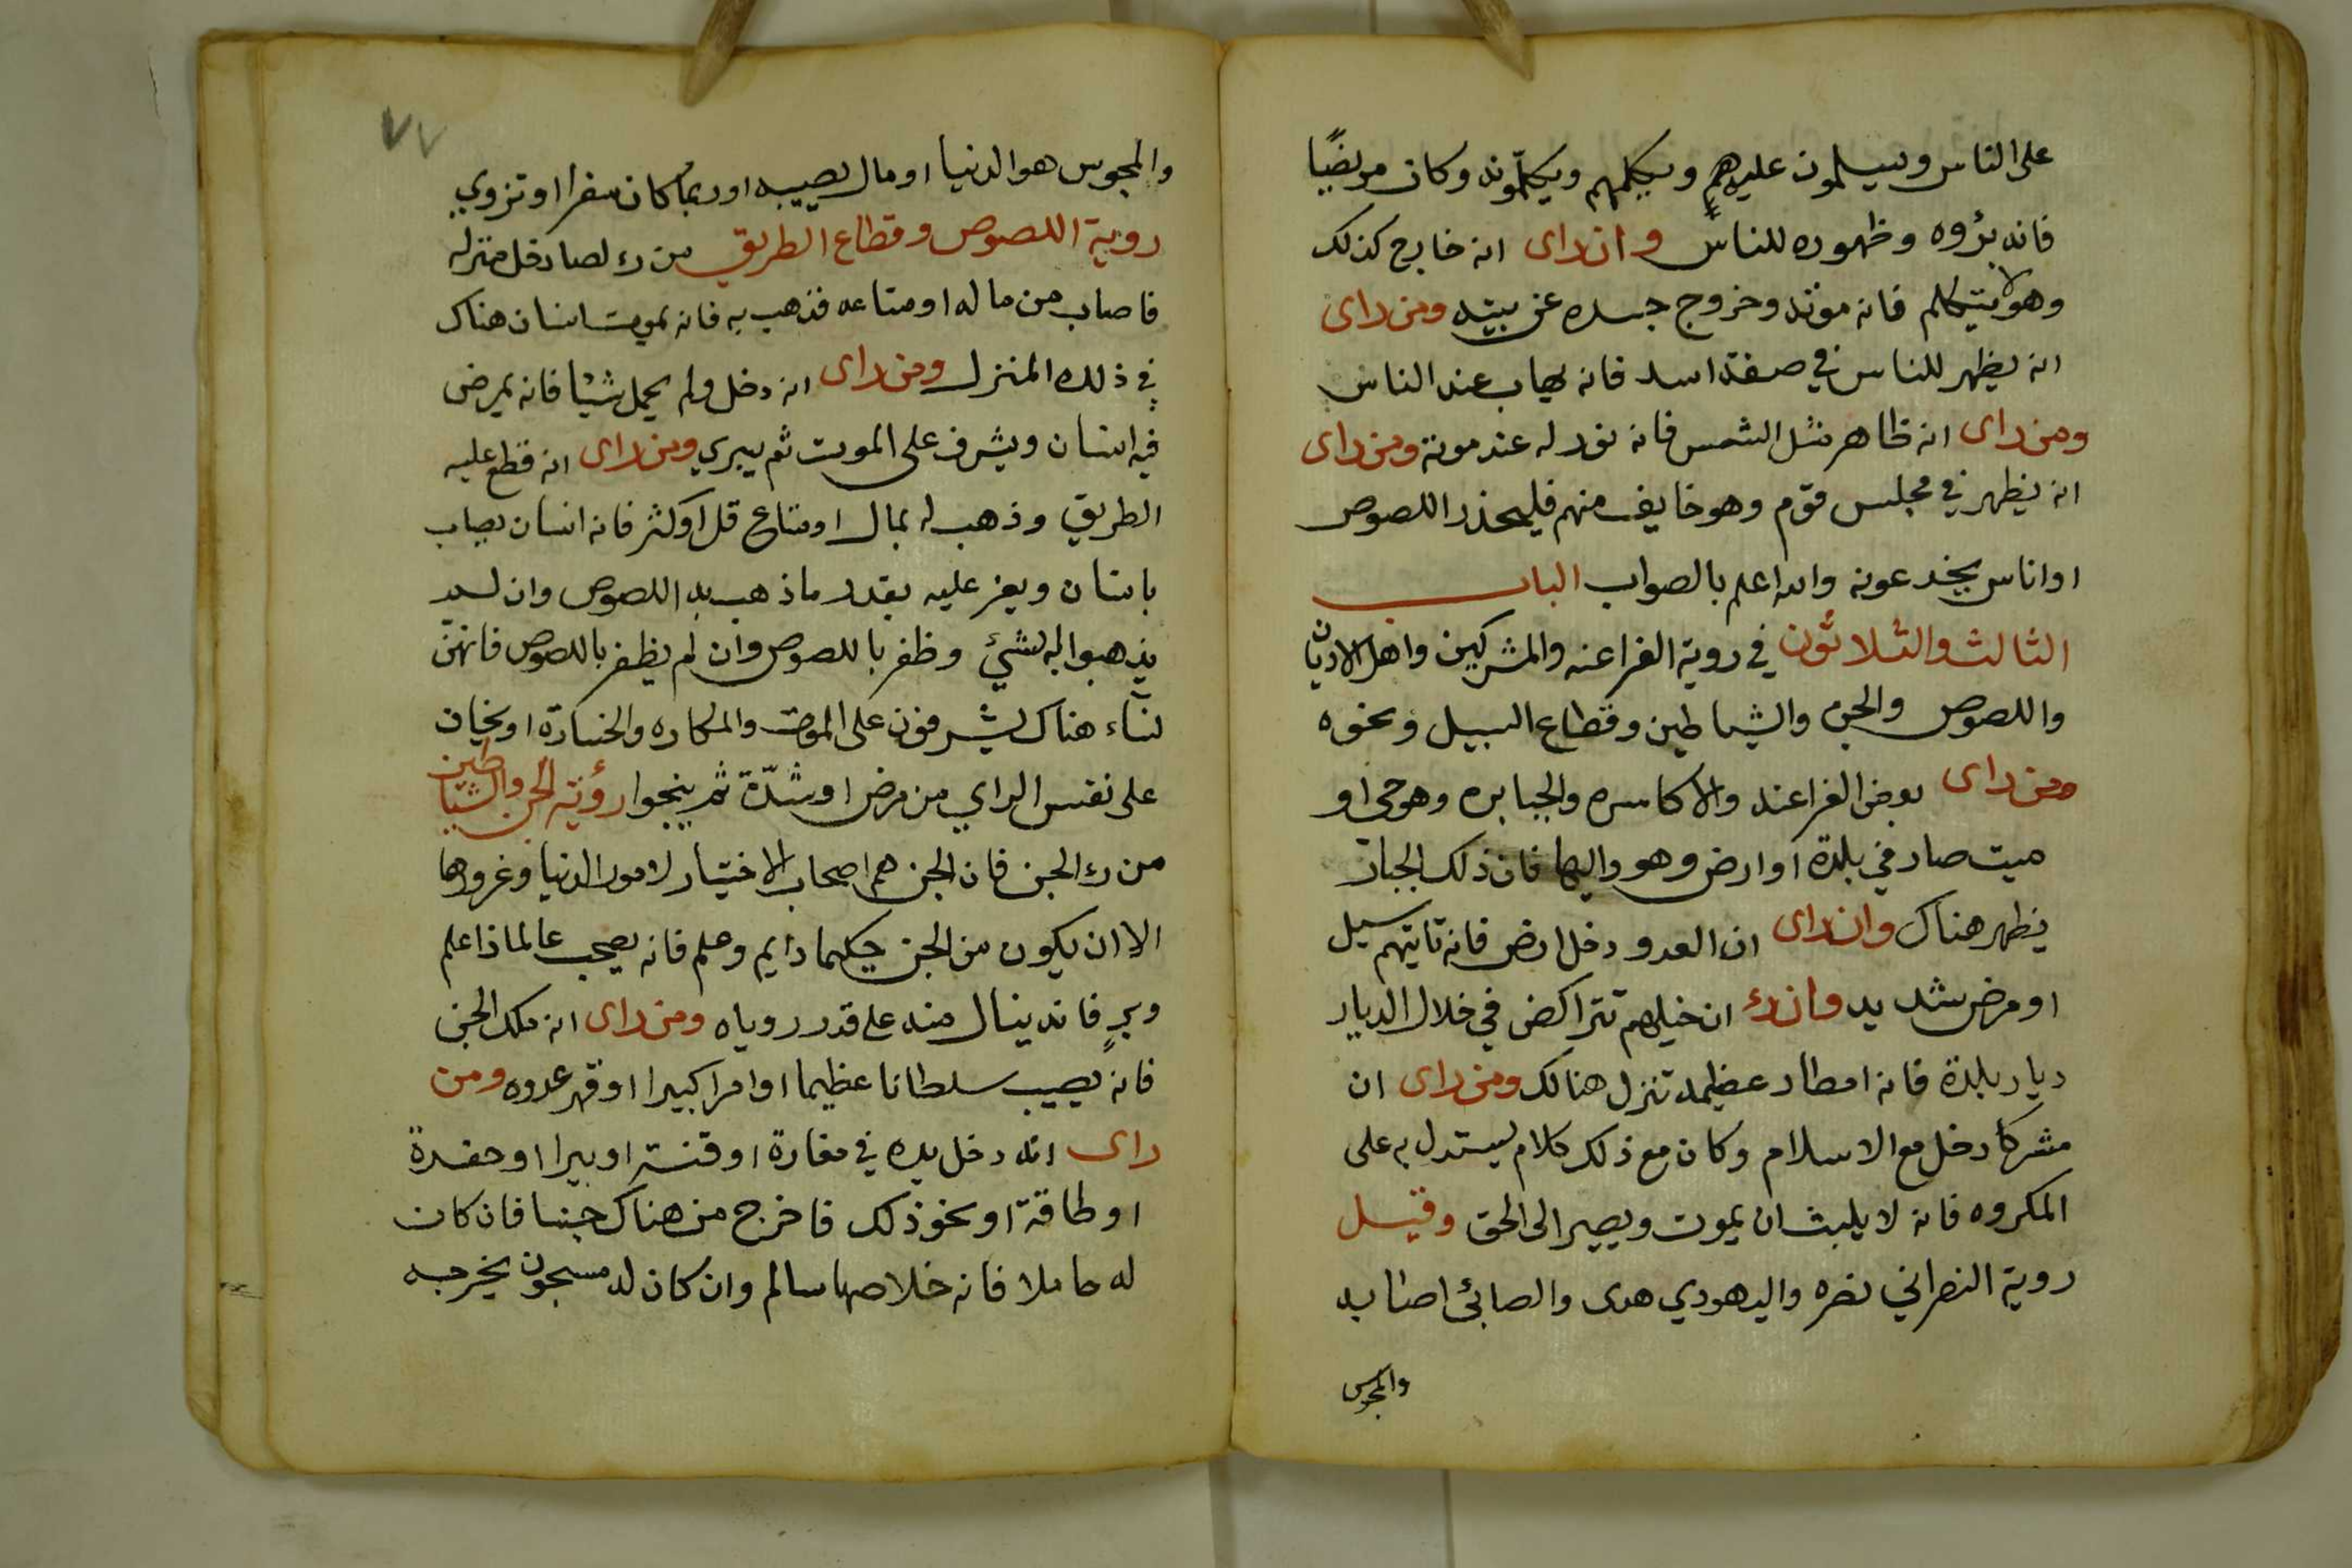 على الناس ويسلمون عليهم ويكلمهم ويكلّمونه وكان مريضًا
فانه برؤه وظهوره للناس وان راى انه خارج كذلك
وهو لا يتكلم فانه موته وخروج جسده عن بيته ومن راى
انه يظهر للناس في صفة اسد فانه يهاب عند الناس
ومن راى انه ظاهر مثل الشمس فانه نور له عند موته ومن راى
انه يظهر في مجلس قوم وهو خايف منهم فليحذر اللصوص
او اناس يخدعونه والله اعلم بالصواب الباب
الثالث والثلاثون في روية الفراعنه والمشركين واهل الاديان
واللصوص والجن والشياطين وقطاع السبيل ونحوه
ومن راى بعض الفراعنه والاكاسره والجبابره وهو حي او
ميت صار في بلدة او ارض وهو واليها فان ذلك الجبار
يظهر هناك وان راى ان العدو دخل ارض فانه تاتيهم سيل
او مرض شديد وان رء ان خيلهم تتراكض في خلال الديار
ديار بلدة فانه امطار عظيمه تنزل هنالك ومن راى ان
مشركا دخل مع الاسلام وكان مع ذلك كلام يستدل به على
المكروه فانه لا يلبث ان يموت ويصير الى الحق وقيل
روية النصراني نصره واليهودي هدى والصابئ اصابه
والمجوس
٧٧
والمجوس هو الدنيا او مال يصيبه او ربما كان سفرا او تزويج
روية اللصوص وقطاع الطريق من رء لصا دخل منزله
فاصاب من ماله او متاعه فذهب به فانه يموت انسان هناك
في ذلك المنزل ومن راى انه دخل ولم يحمل شيئا فانه يمرض
فيه انسان ويشرف على الموت ثم يبري ومن راى انه قطع عليه
الطريق وذهب له بمال او متاع قل او كثر فانه انسان يصاب
بانسان ويعز عليه بقدر ما ذهب به اللصوص وان لم
يذهبوا له بشيئ وظفر باللصوص وان لم يظفر باللصوص فانهن
نساء هناك يشرفون على الموت والمكاره والخسارة او يخاف
على نفس الراي من مرض او شدّة ثم ينجوا رؤية الجن والشياطين
من رء الجن فان الجن هم اصحاب الاختيار لامور الدنيا وغرورها
الا ان يكون من الجن حكيما دايم وعلم فانه يصحب عالما ذا علم
وبرٍ فانه ينال منه على قدر روياه ومن راى انه ملك الجن
فانه يصيب سلطانا عظيما او امرا كبيرا او قهر عدوه ومن
راى انه دخل يده في مغارة او قنتر او بيرا او حفرة
او طاقة او نحو ذلك فاخرج من هناك جنيا فان كان
له حاملا فانه خلاصها سالم وان كان له مسجون يخرجه